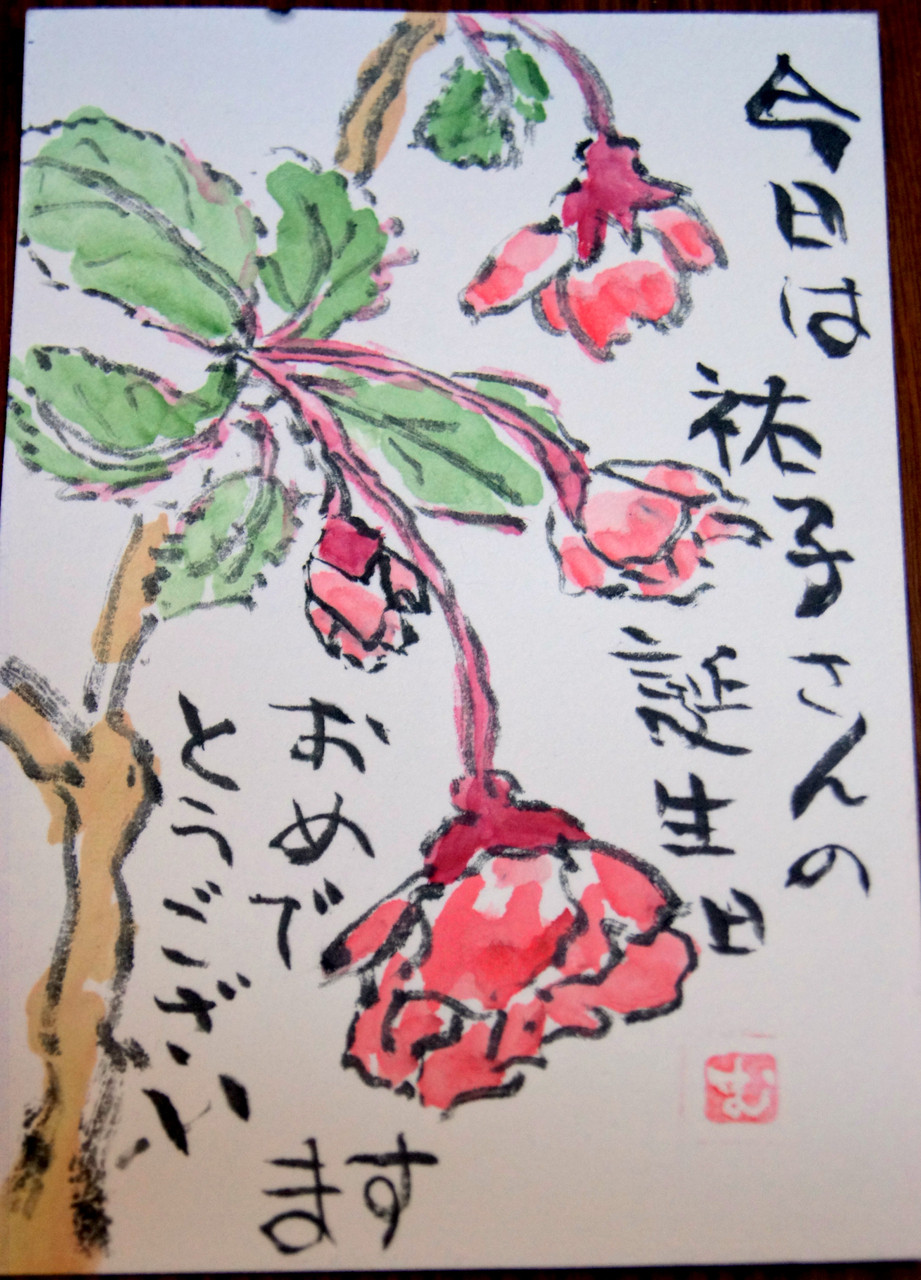 今日は
祐子さんの
誕生日
おめで
とうござい
ます
む